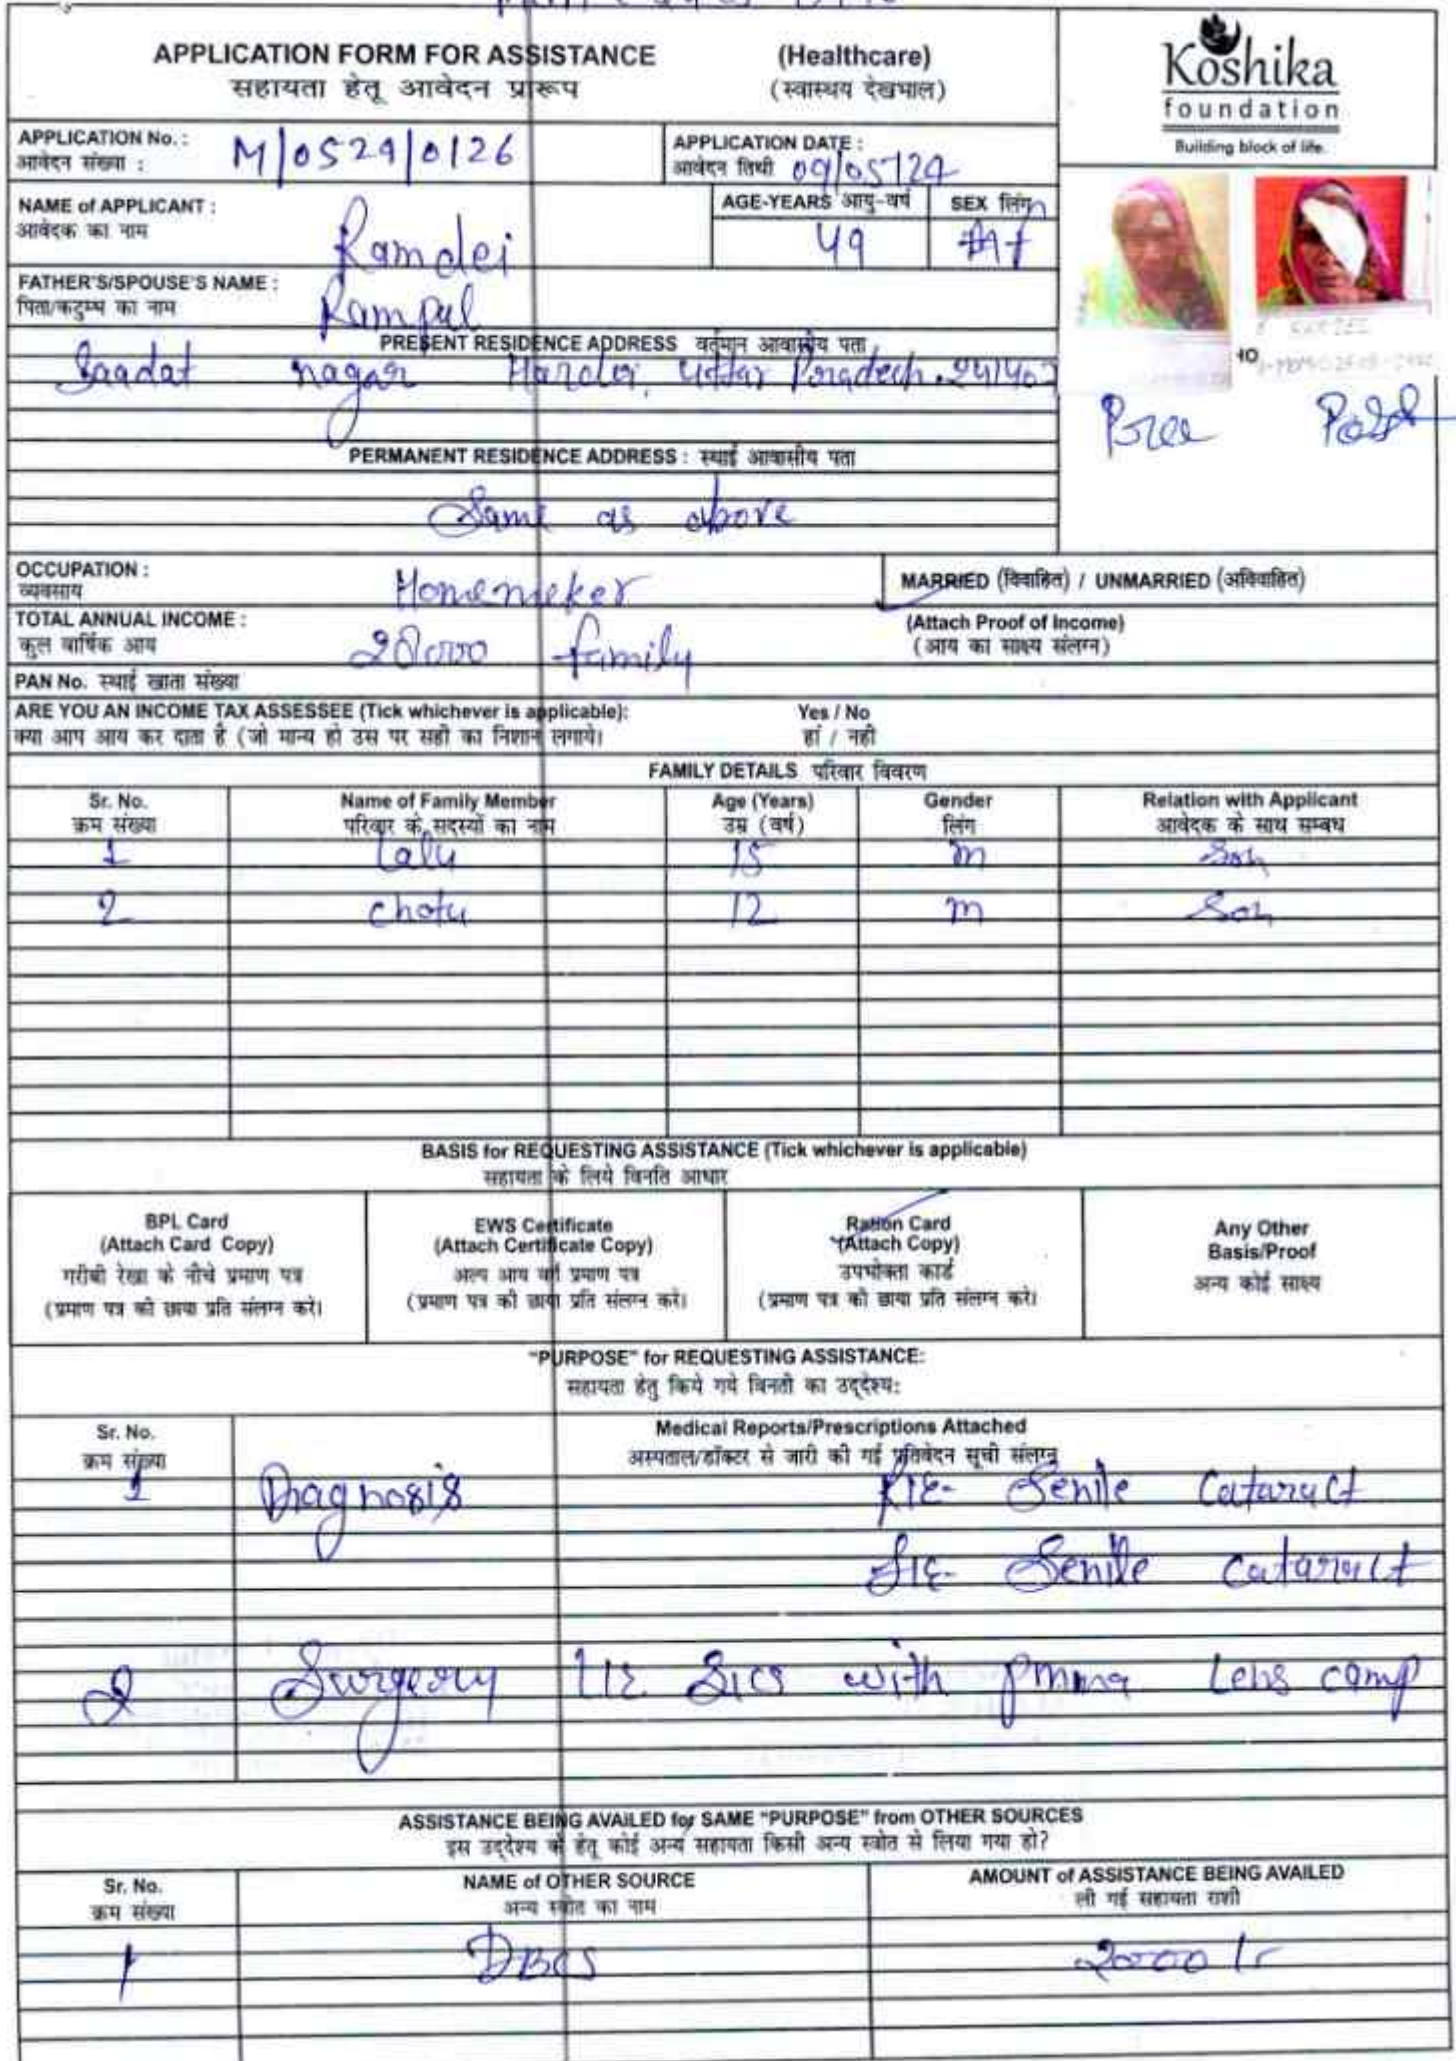 APPLICATION FORM FOR ASSISTANCE (Healthcare)
सहायता हेतू आवेदन प्रारूप (स्वास्थय देखभाल)
Koshika
foundation
Building block of life.
APPLICATION No. : M/0524/0126
आवेदन संख्या :
APPLICATION DATE :
आवेदन तिथी 09/05/24
NAME of APPLICANT : Ramdei
आवेदक का नाम
AGE-YEARS आयु-वर्ष 49
SEX लिंग f
FATHER'S/SPOUSE'S NAME : Rampal
पिता/कटुम्ब का नाम
PRESENT RESIDENCE ADDRESS वर्तमान आवासीय पता
Saadat nagar Hardoi, Uttar Pradesh.
Pree Post
PERMANENT RESIDENCE ADDRESS : स्थाई आवासीय पता
Same as above
OCCUPATION : Homemeker
व्यवसाय
MARRIED (विवाहित) / UNMARRIED (अविवाहित)
TOTAL ANNUAL INCOME : family
कुल वार्षिक आय
(Attach Proof of Income)
(आय का साक्ष्य संलग्न)
PAN No. स्थाई खाता संख्या
ARE YOU AN INCOME TAX ASSESSEE (Tick whichever is applicable): Yes / No
क्या आप आय कर दाता है (जो मान्य हो उस पर सही का निशान लगाये। हां / नही
FAMILY DETAILS परिवार विवरण
Sr. No. Name of Family Member Age (Years) Gender Relation with Applicant
क्रम संख्या परिवार के सदस्यों का नाम उम्र (वर्ष) लिंग आवेदक के साथ सम्बध
1 Lalu 15 m Son
2 chotu 12 m Son
BASIS for REQUESTING ASSISTANCE (Tick whichever is applicable)
सहायता के लिये विनति आधार
BPL Card
(Attach Card Copy)
गरीबी रेखा के नीचे प्रमाण पत्र
(प्रमाण पत्र की छाया प्रति संलग्न करे।
EWS Certificate
(Attach Certificate Copy)
अल्प आय वर्ग प्रमाण पत्र
(प्रमाण पत्र की छाया प्रति संलग्न करे।
Ration Card
(Attach Copy)
उपभोक्ता कार्ड
(प्रमाण पत्र की छाया प्रति संलग्न करे।
Any Other
Basis/Proof
अन्य कोई साक्ष्य
"PURPOSE" for REQUESTING ASSISTANCE:
सहायता हेतु किये गये विनती का उद्देश्य:
Sr. No. Medical Reports/Prescriptions Attached
क्रम संख्या अस्पताल/डॉक्टर से जारी की गई प्रतिवेदन सूची संलग्न
1 Diagnosis RIE- Senile Cataract
LIE- Senile Cataract
2 Surgery LIE SICS with pmma Lens camp
ASSISTANCE BEING AVAILED for SAME "PURPOSE" from OTHER SOURCES
इस उद्देश्य के हेतू कोई अन्य सहायता किसी अन्य स्त्रोत से लिया गया हो?
Sr. No. NAME of OTHER SOURCE AMOUNT of ASSISTANCE BEING AVAILED
क्रम संख्या अन्य स्त्रोत का नाम ली गई सहायता राशी
1 DBCS 2000/-